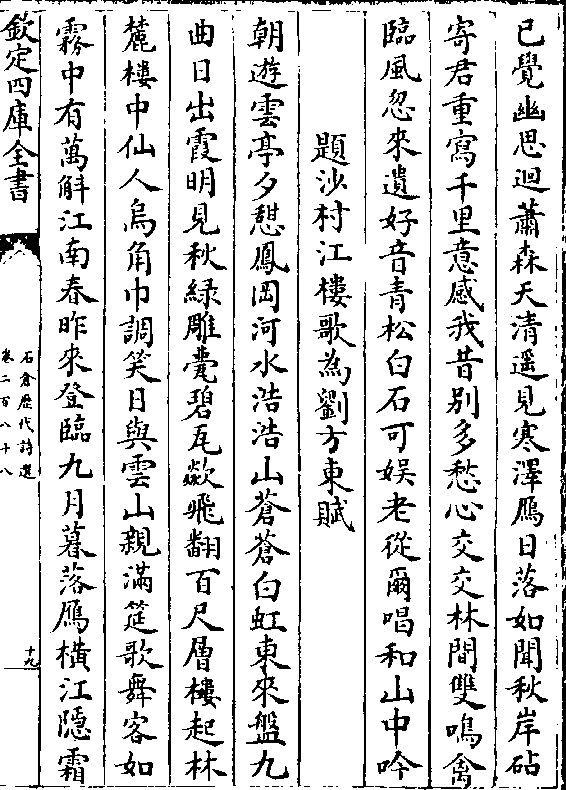 已覺幽思迴蕭森天清遥見寒澤鴈日落如聞秋岸砧
寄君重寫千里意感我昔别多愁心交交林間雙鳴禽
臨風忽來遺好音青松白石可娱老從爾唱和山中吟
題沙村江樓歌為劉方東賦
朝遊雲亭夕憇鳳岡河水浩浩山蒼蒼白虹東來盤九
曲日出霞明見秋緑雕甍碧瓦歘飛翻百尺層樓起林
麓樓中仙人烏角巾調笑日與雲山親滿筵歌舞客如
霧中有萬斛江南春昨來登臨九月暮落鴈橫江隱霜
欽定四庫全書
石倉歷代詩選
卷二百八十八
十九